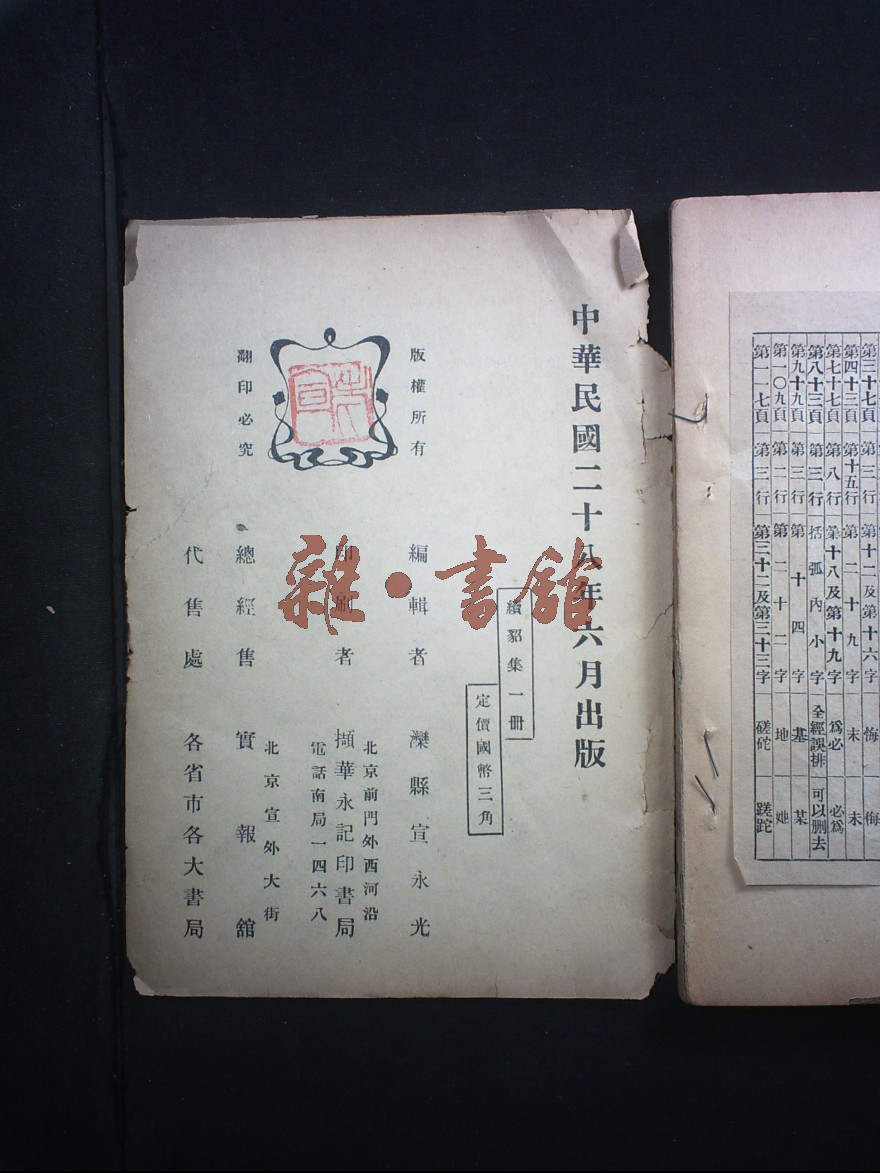 中華民國二十八年六月出版
續貂集一冊
定價國幣三角
版權所有
翻印必究
編輯者 灤縣宣永光
印刷者 擷華永記印書局
北京前門外西河沿
電話南局一四六八
總經售 實報館
北京宣外大街
代售處 各省市各大書局
雜·書館
第三十七頁 第三行 第十二及第十六字
第四十三頁 第十五行 第二十九字 末 未
第七十七頁 第八行 第十八及第十九字 爲必 必爲
第八十三頁 第三行 括弧內小字 全經誤排 可以删去
第九十九頁 第三行 第十四字 基 某
第一〇九頁 第二行 第二十二字 地 她
第一一七頁 第三行 第三十二及第三十三字 磋砣 蹉跎